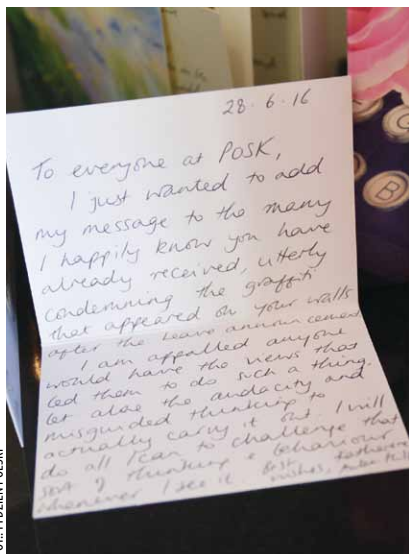 28.6.16
To everyone at POSK,
I just wanted to add
my message to the many
I happily know you have
already received, utterly
condemning the graffiti
that appeared on your walls
after the Leave announcement
I am appalled anyone
would have the views that
led them to do such a thing.
let aloe the audacity and
misguided thinking to
actually carry it out. I will
do all I can to challenge that
sort of thinking + behaviour
whenever I see it Best
wishes,
G
B
TYDZIEŃ POLSKI